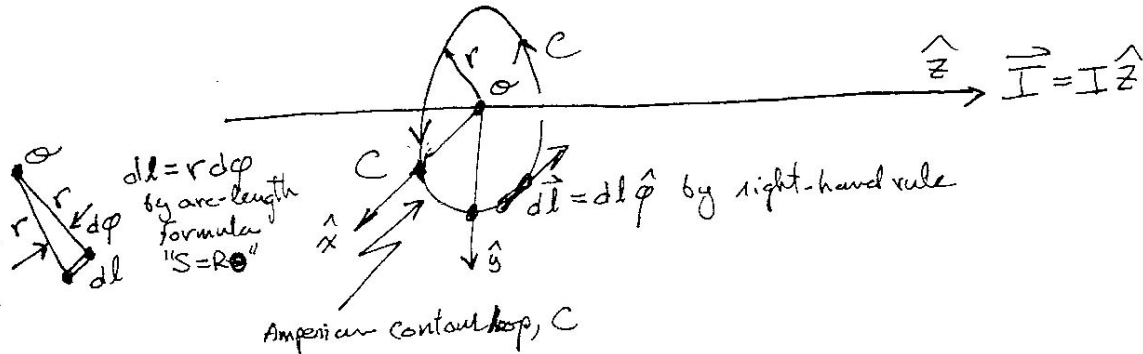 r
C
O
ẑ
I⃗ = I ẑ
O
r
r
dφ
dl
dl = r dφ
by arc-length
formula
"S=Rθ"
C
x̂
ŷ
d⃗l = dl φ̂ by right-hand rule
Amperian contour loop, C